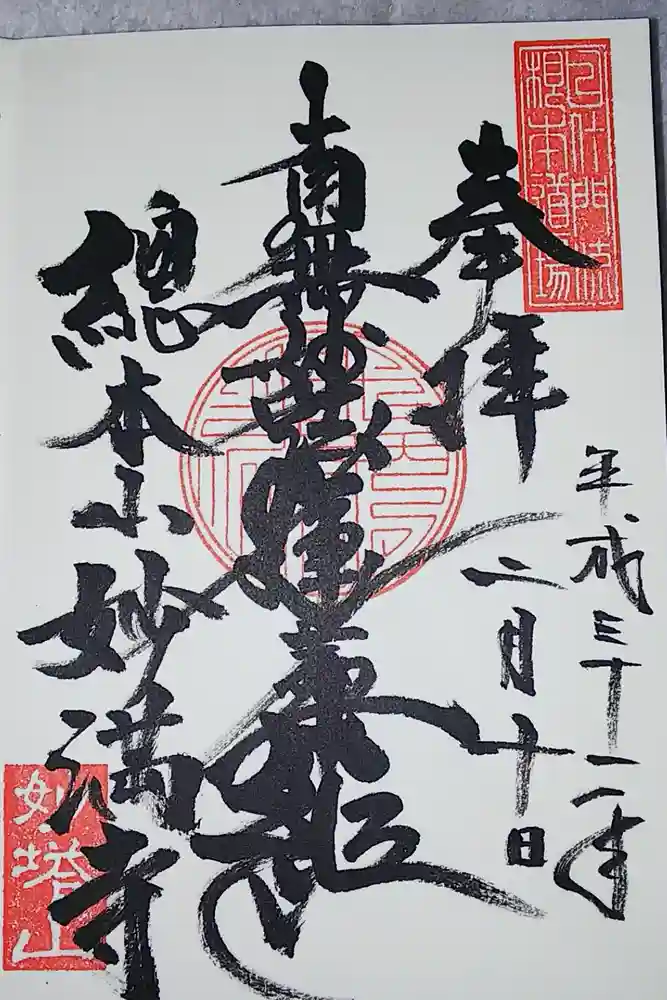 日什門流
根本道場
奉拝
平成三十一年
二月十日
南無妙法蓮華経
總本山妙満寺
妙塔山